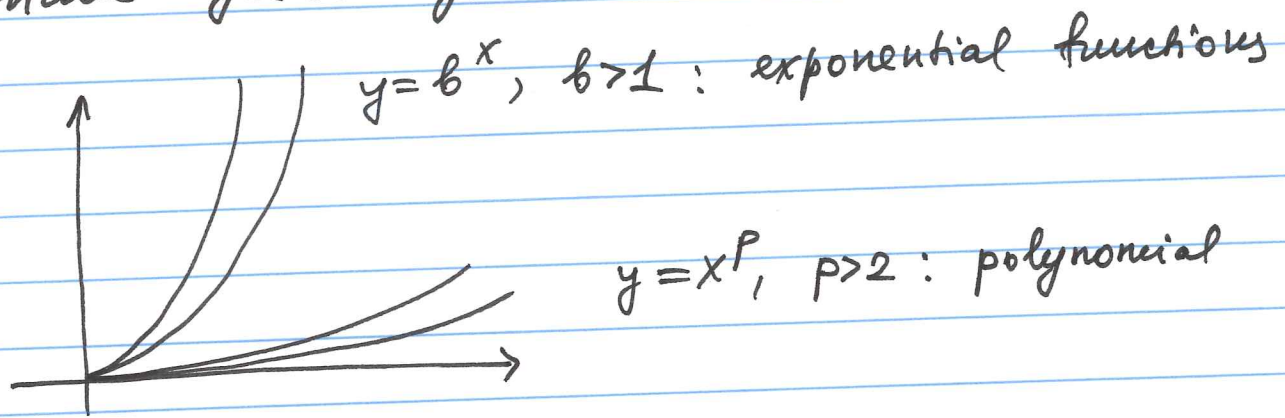 y = b^x, b>1 : exponential functions
y = x^p, p>2 : polynomial